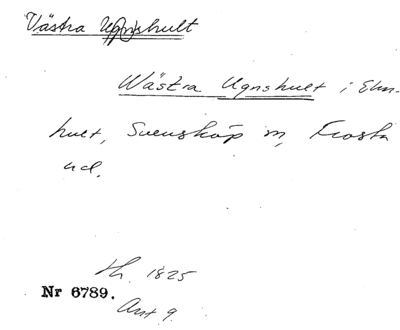 Västra Ugnshult
Wästra Ugnshult i Elm-
hult, Svensköp sn, Frosta
hd.
th. 1825
Nr 6789.
Avt 9.